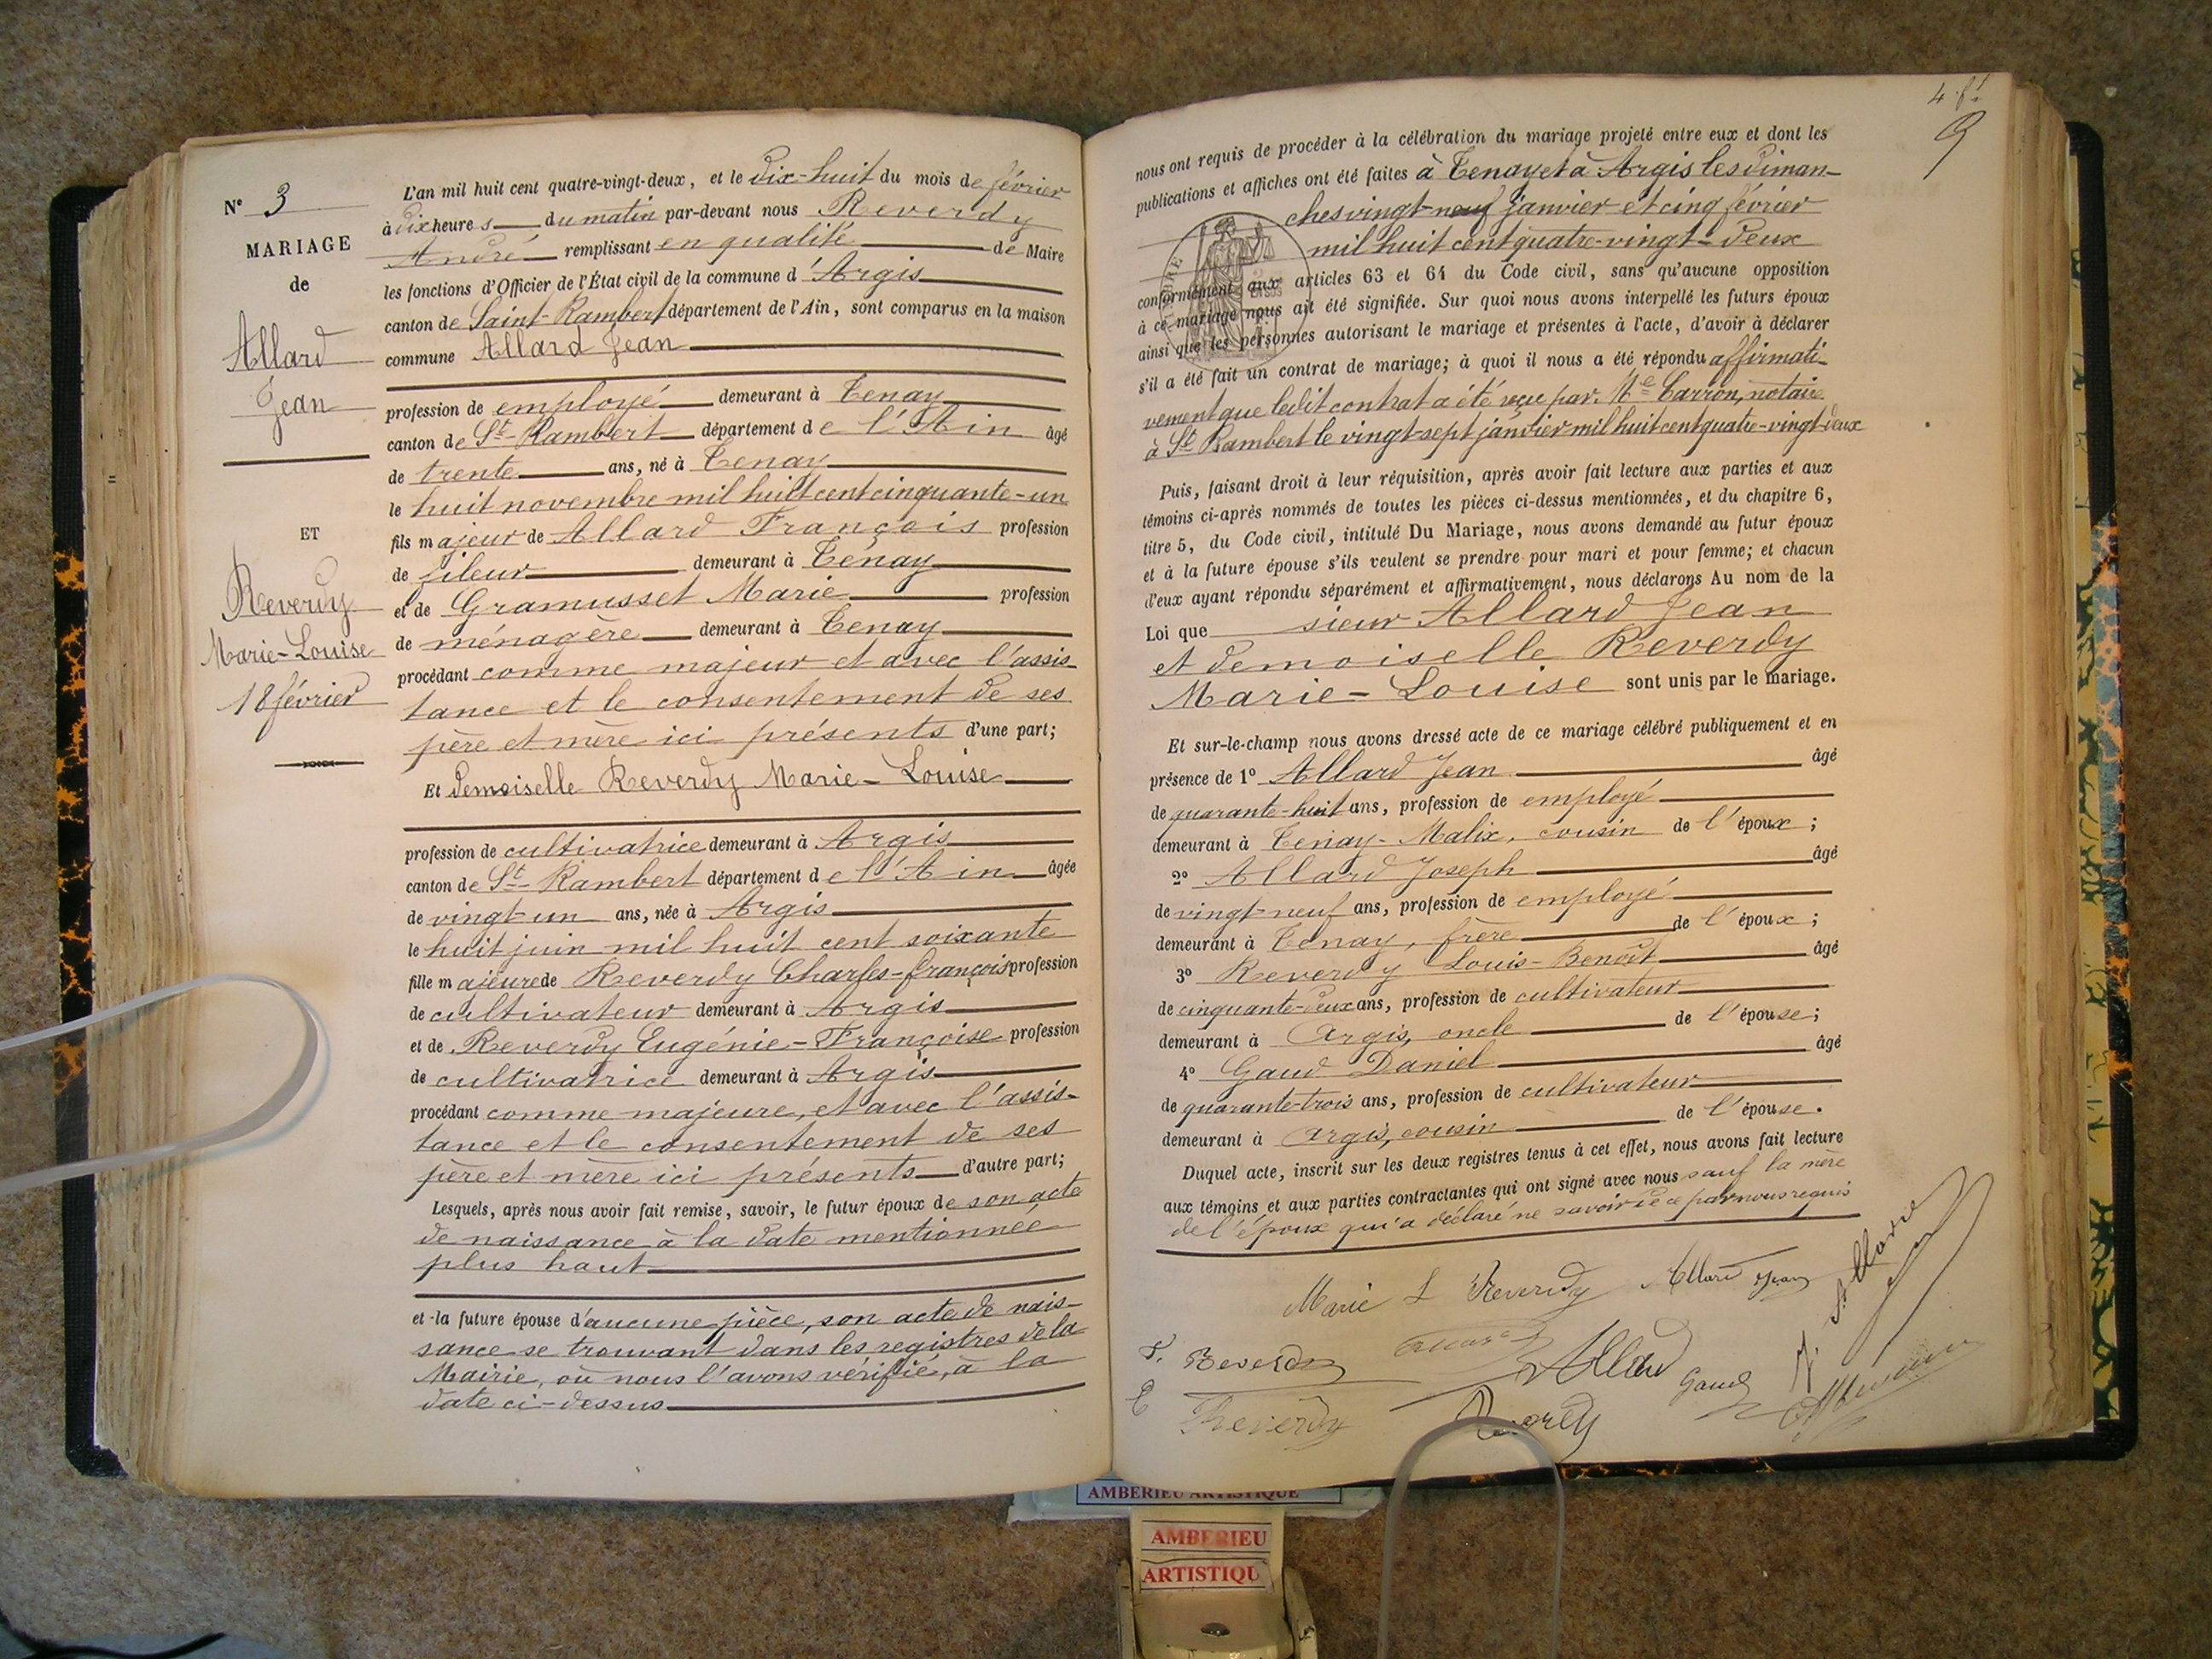 N° 3
MARIAGE
de
Allard
Jean
ET
Reverdy
Marie-Louise
18 février
L'an mil huit cent quatre-vingt-deux, et le dix-huit du mois de février
à dix heures du matin par-devant nous Reverdy
André remplissant en qualité de Maire
les fonctions d'Officier de l'État civil de la commune d'Argis
canton de Saint-Rambert département de l'Ain, sont comparus en la maison
commune Allard Jean
profession de employé demeurant à Tenay
canton de St-Rambert département de l'Ain âgé
de trente ans, né à Tenay
le huit novembre mil huit cent cinquante-un
fils majeur de Allard François profession
de fileur demeurant à Tenay
et de Gramusset Marie profession
de ménagère demeurant à Tenay
procédant comme majeur et avec l'assis-
tance et le consentement de ses
père et mère ici présents d'une part;
Et demoiselle Reverdy Marie-Louise
profession de cultivatrice demeurant à Argis
canton de St-Rambert département de l'Ain âgée
de vingt-un ans, née à Argis
le huit juin mil huit cent soixante
fille majeure de Reverdy Charles-françois profession
de cultivateur demeurant à Argis
et de Reverdy Eugénie-Françoise profession
de cultivatrice demeurant à Argis
procédant comme majeure, et avec l'assis-
tance et le consentement de ses
père et mère ici présents d'autre part;
Lesquels, après nous avoir fait remise, savoir, le futur époux de son acte
de naissance à la date mentionnée
plus haut
et la future épouse d'aucune pièce, son acte de nais-
sance se trouvant dans les registres de la
Mairie, où nous l'avons vérifié, à la
date ci-dessus
4 f.
9
nous ont requis de procéder à la célébration du mariage projeté entre eux et dont les
publications et affiches ont été faites à Tenay et à Argis les diman-
ches vingt-neuf janvier et cinq février
mil huit cent quatre-vingt-deux
conformément aux articles 63 et 64 du Code civil, sans qu'aucune opposition
à ce mariage nous ait été signifiée. Sur quoi nous avons interpellé les futurs époux
ainsi que les personnes autorisant le mariage et présentes à l'acte, d'avoir à déclarer
s'il a été fait un contrat de mariage; à quoi il nous a été répondu affirmati-
vement que ledit contrat a été reçu par Me Carron, notaire
à St Rambert le vingt-sept janvier mil huit cent quatre-vingt-deux
Puis, faisant droit à leur réquisition, après avoir fait lecture aux parties et aux
témoins ci-après nommés de toutes les pièces ci-dessus mentionnées, et du chapitre 6,
titre 5, du Code civil, intitulé Du Mariage, nous avons demandé au futur époux
et à la future épouse s'ils veulent se prendre pour mari et pour femme; et chacun
d'eux ayant répondu séparément et affirmativement, nous déclarons Au nom de la
Loi que sieur Allard Jean
et demoiselle Reverdy
Marie-Louise sont unis par le mariage.
Et sur-le-champ nous avons dressé acte de ce mariage célébré publiquement et en
présence de 1° Allard Jean âgé
de quarante-huit ans, profession de employé
demeurant à Tenay-Malix, cousin de l'époux;
2° Allard Joseph âgé
de vingt-neuf ans, profession de employé
demeurant à Tenay, frère de l'époux;
3° Reverdy Louis-Benoît âgé
de cinquante-deux ans, profession de cultivateur
demeurant à Argis, oncle de l'épouse;
4° Gaud Daniel âgé
de quarante-trois ans, profession de cultivateur
demeurant à Argis, cousin de l'épouse.
Duquel acte, inscrit sur les deux registres tenus à cet effet, nous avons fait lecture
aux témoins et aux parties contractantes qui ont signé avec nous sauf la mère
de l'époux qui a déclaré ne savoir de ce par nous requis
Marie L Reverdy Allard Jean
Allard
F. Reverdy
Allard
Gaud
E Reverdy
AMBERIEU ARTISTIQUE
AMBERIEU
ARTISTIQU